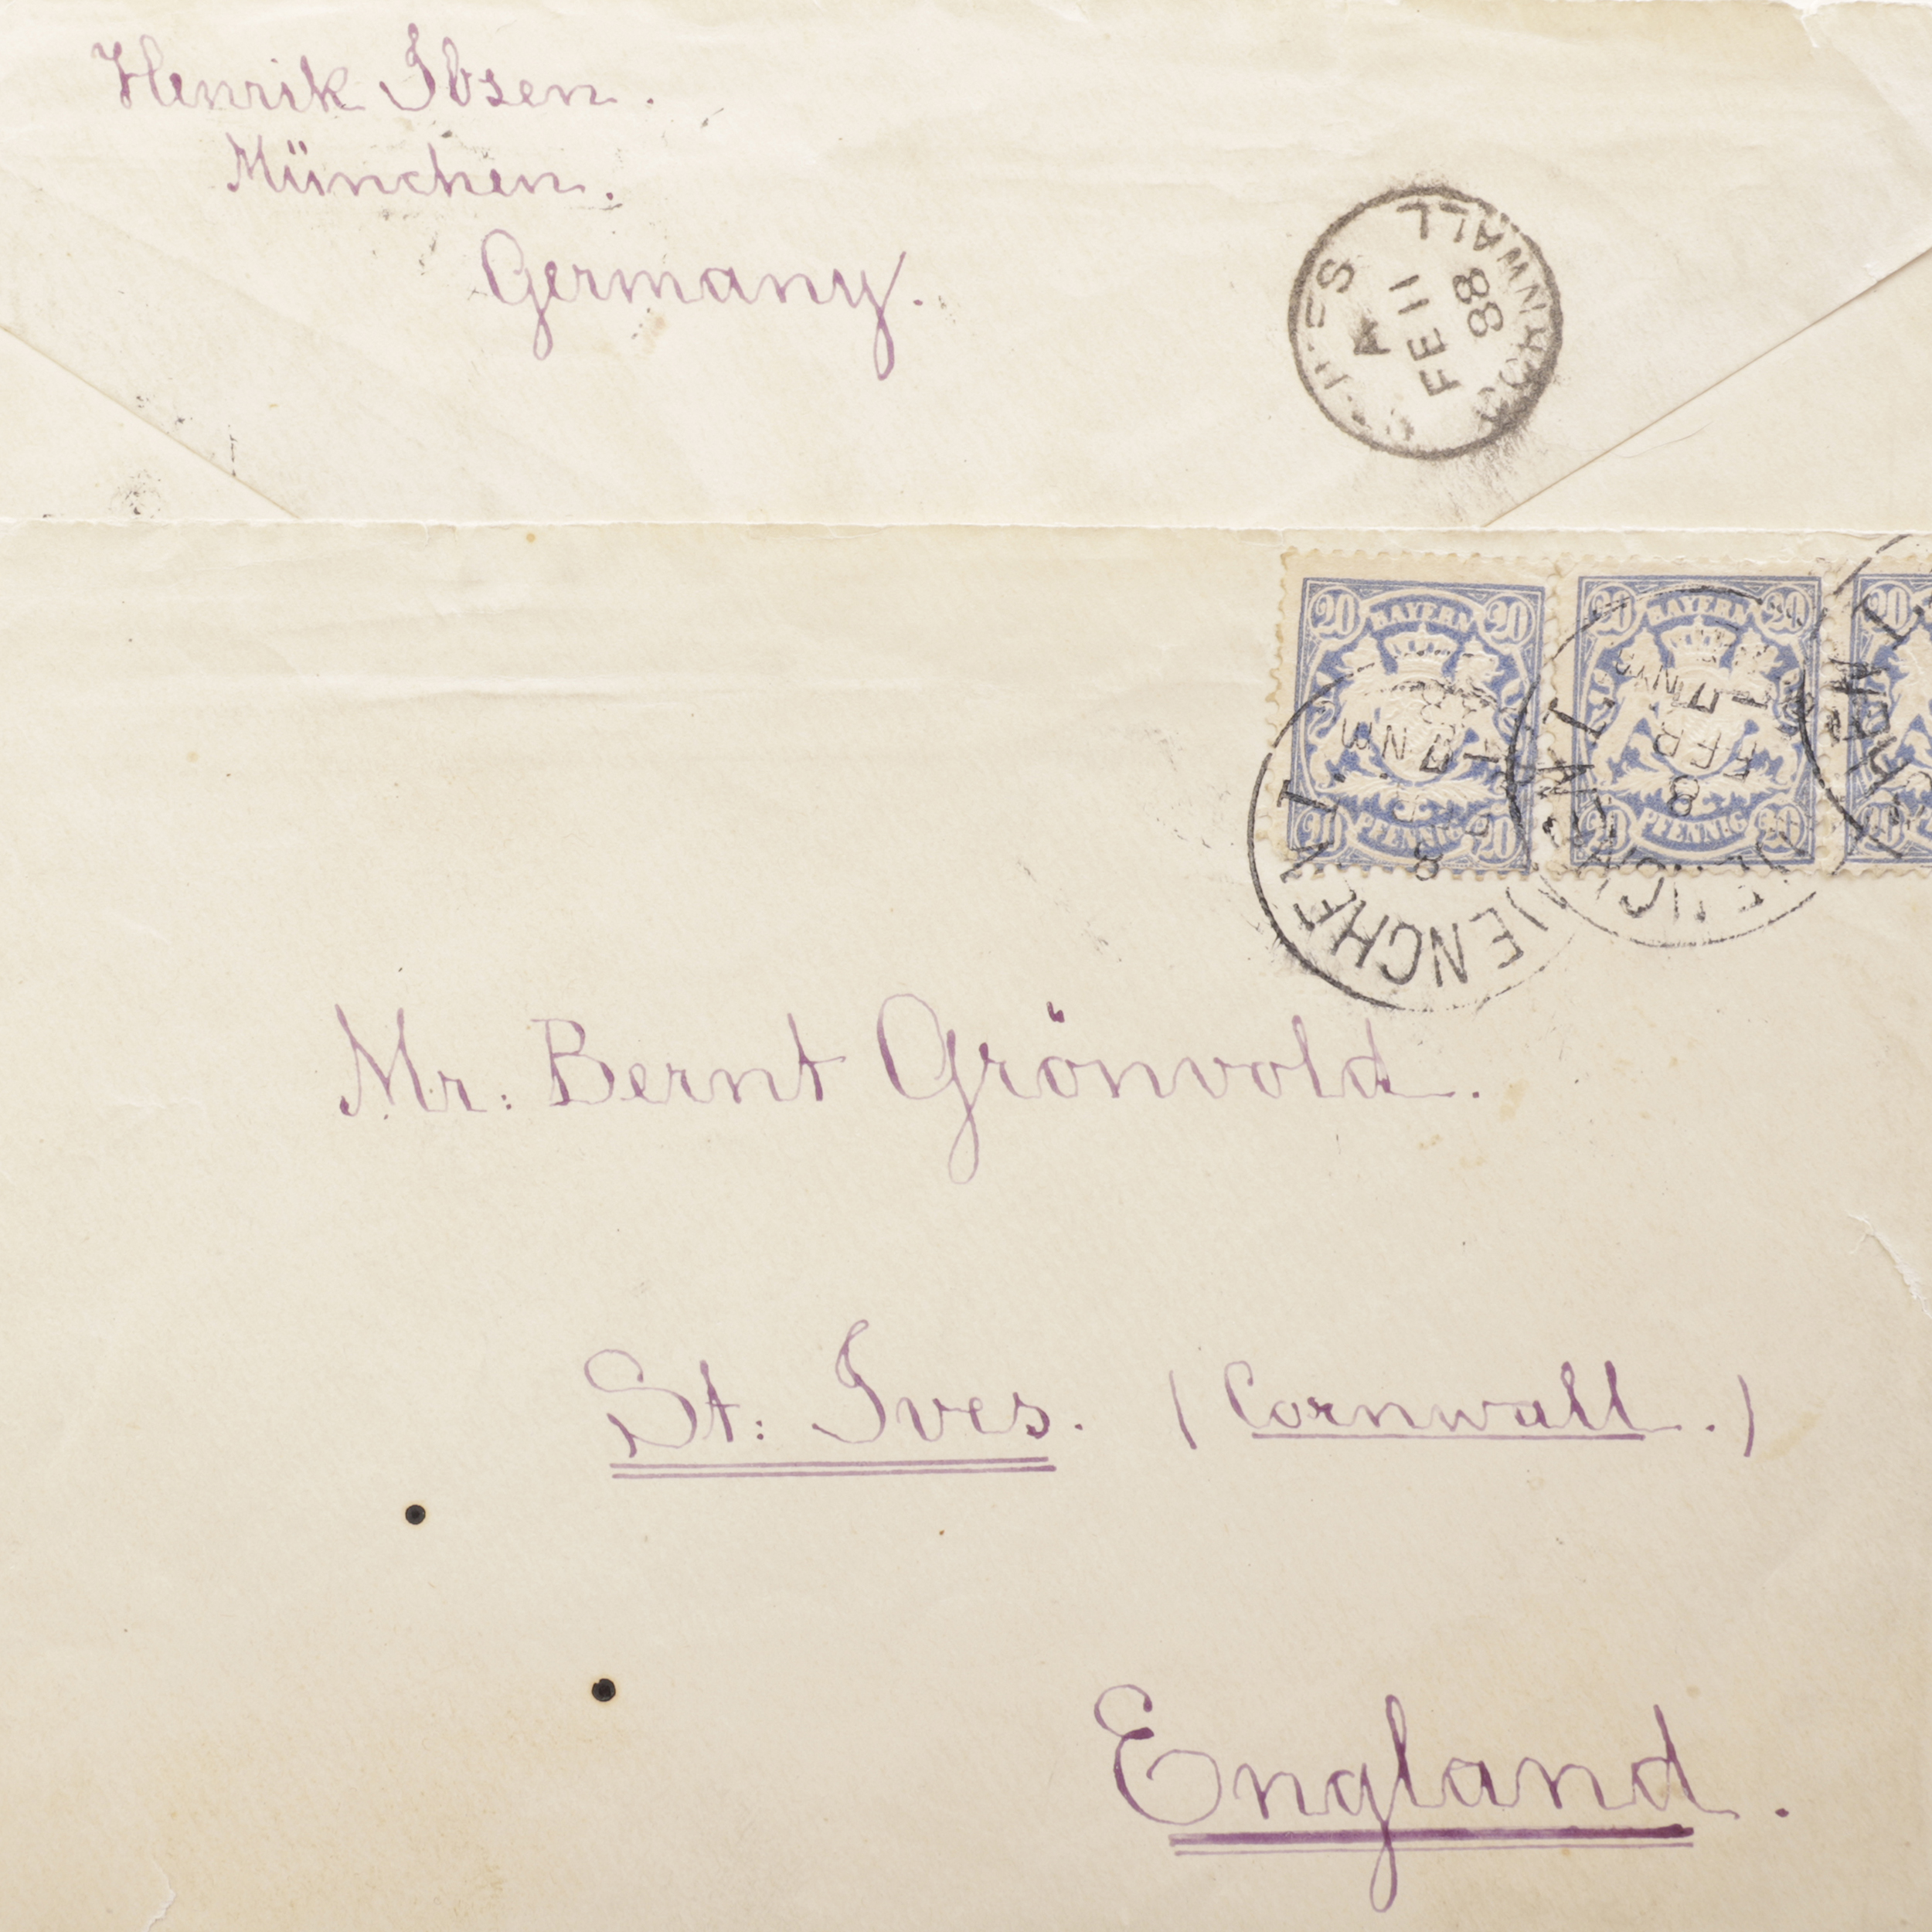 Henrik Ibsen.
München.
Germany.
CORNWALL
A
FE 11
88
20 BAYERN 20
PFENNIG 20
20 BAYERN 20
PFENNIG
20
8
7
NM
8
FEB
7
Mr: Bernt Grönvold.
St: Ives. (Cornwall.)
England.